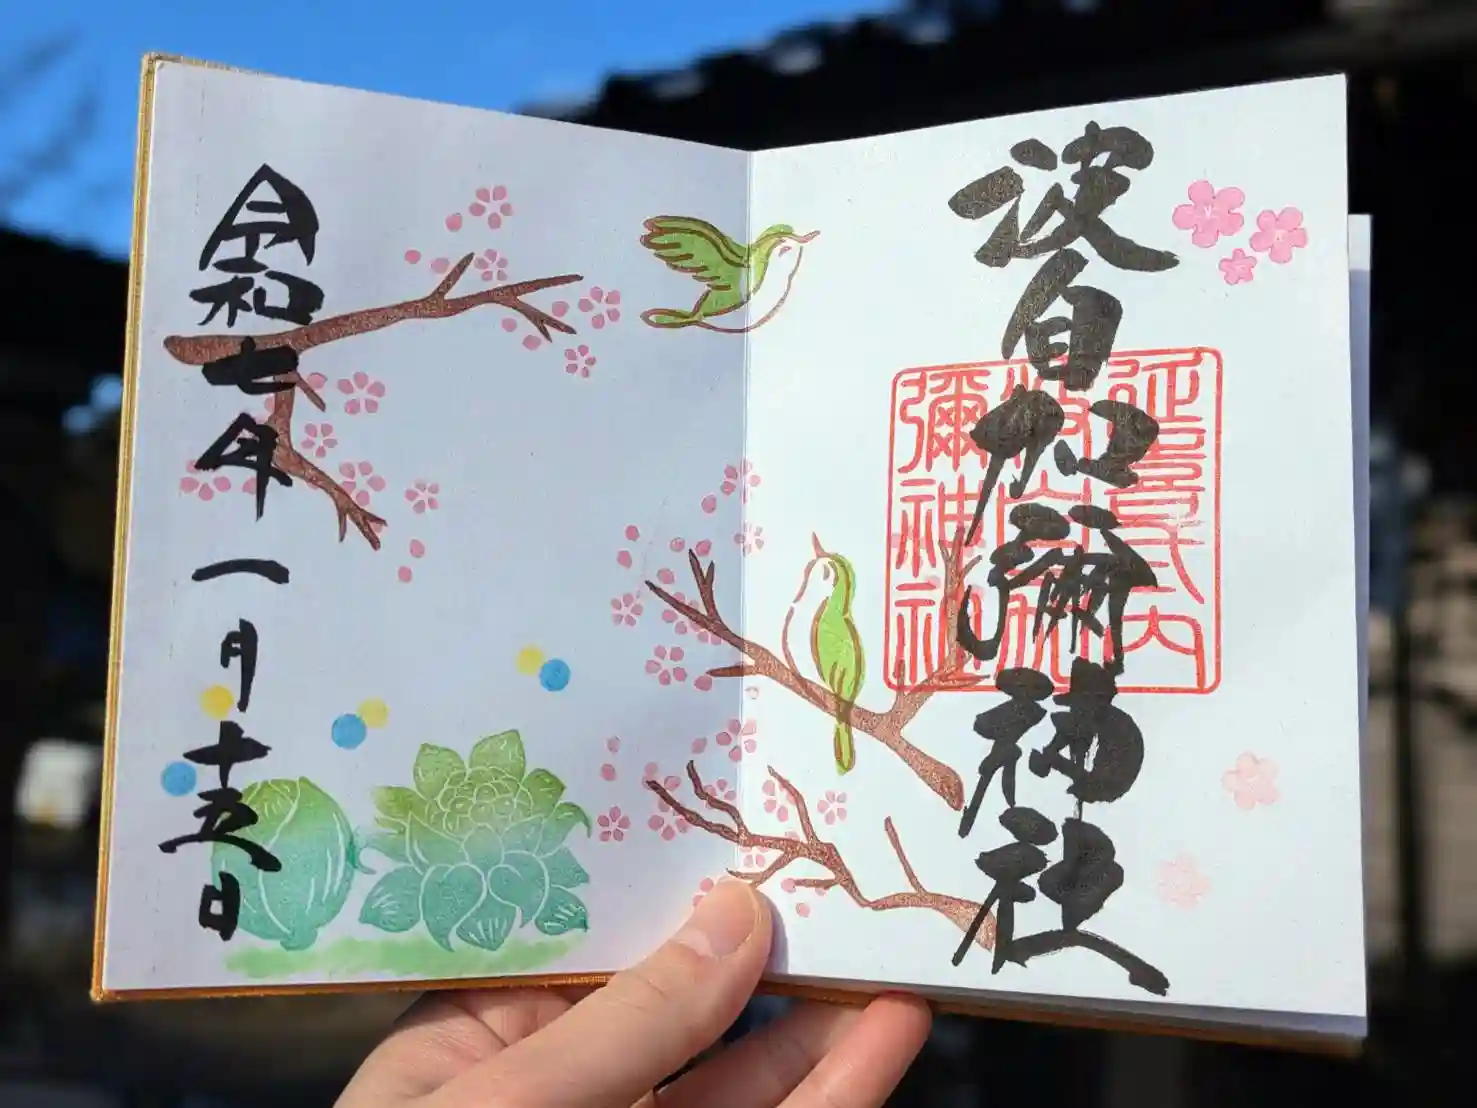 波自加彌神社
延喜式内
波自加
彌神社
令和七年一月十五日